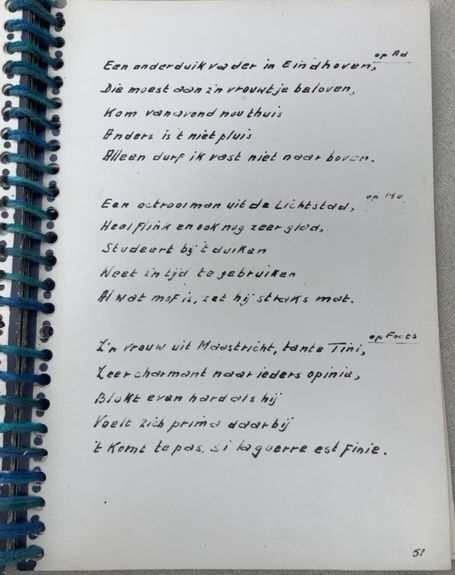 op Ad
Een onderduikvader in Eindhoven,
Die moest aan z'n vrouwtje beloven,
Kom vanavond nou thuis
Anders is 't niet pluis
Alleen durf ik vast niet naar boven.
op
Een octrooiman uit de Lichtstad,
Heel flink en ook nog zeer glad,
Studeert bij 't duiken
Weet z'n tijd te gebruiken
Al wat mof is, zet hij straks mat.
op Foots
Z'n vrouw uit Maastricht, tante Tini,
Zeer charmant naar ieders opinie,
Blokt even hard als hij
Voelt zich prima daarbij
't Komt te pas, si la guerre est finie.
51